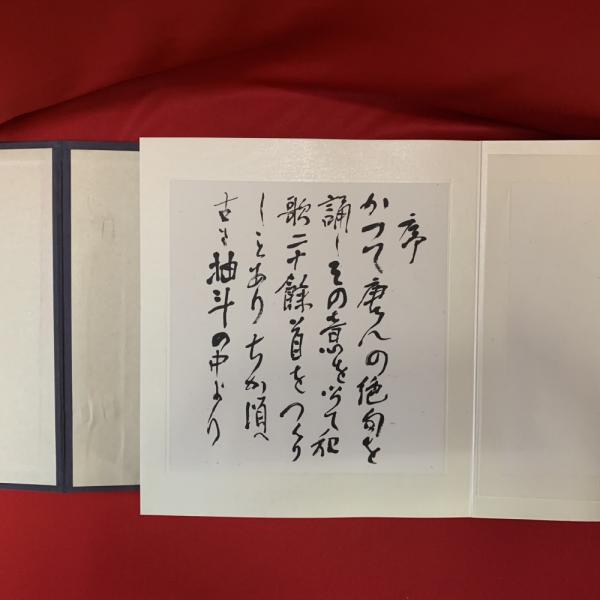 序
かつて唐人の絶句を
誦しその意を以て和
歌二十餘首をつくり
しことありちか頃
古き抽斗の中より